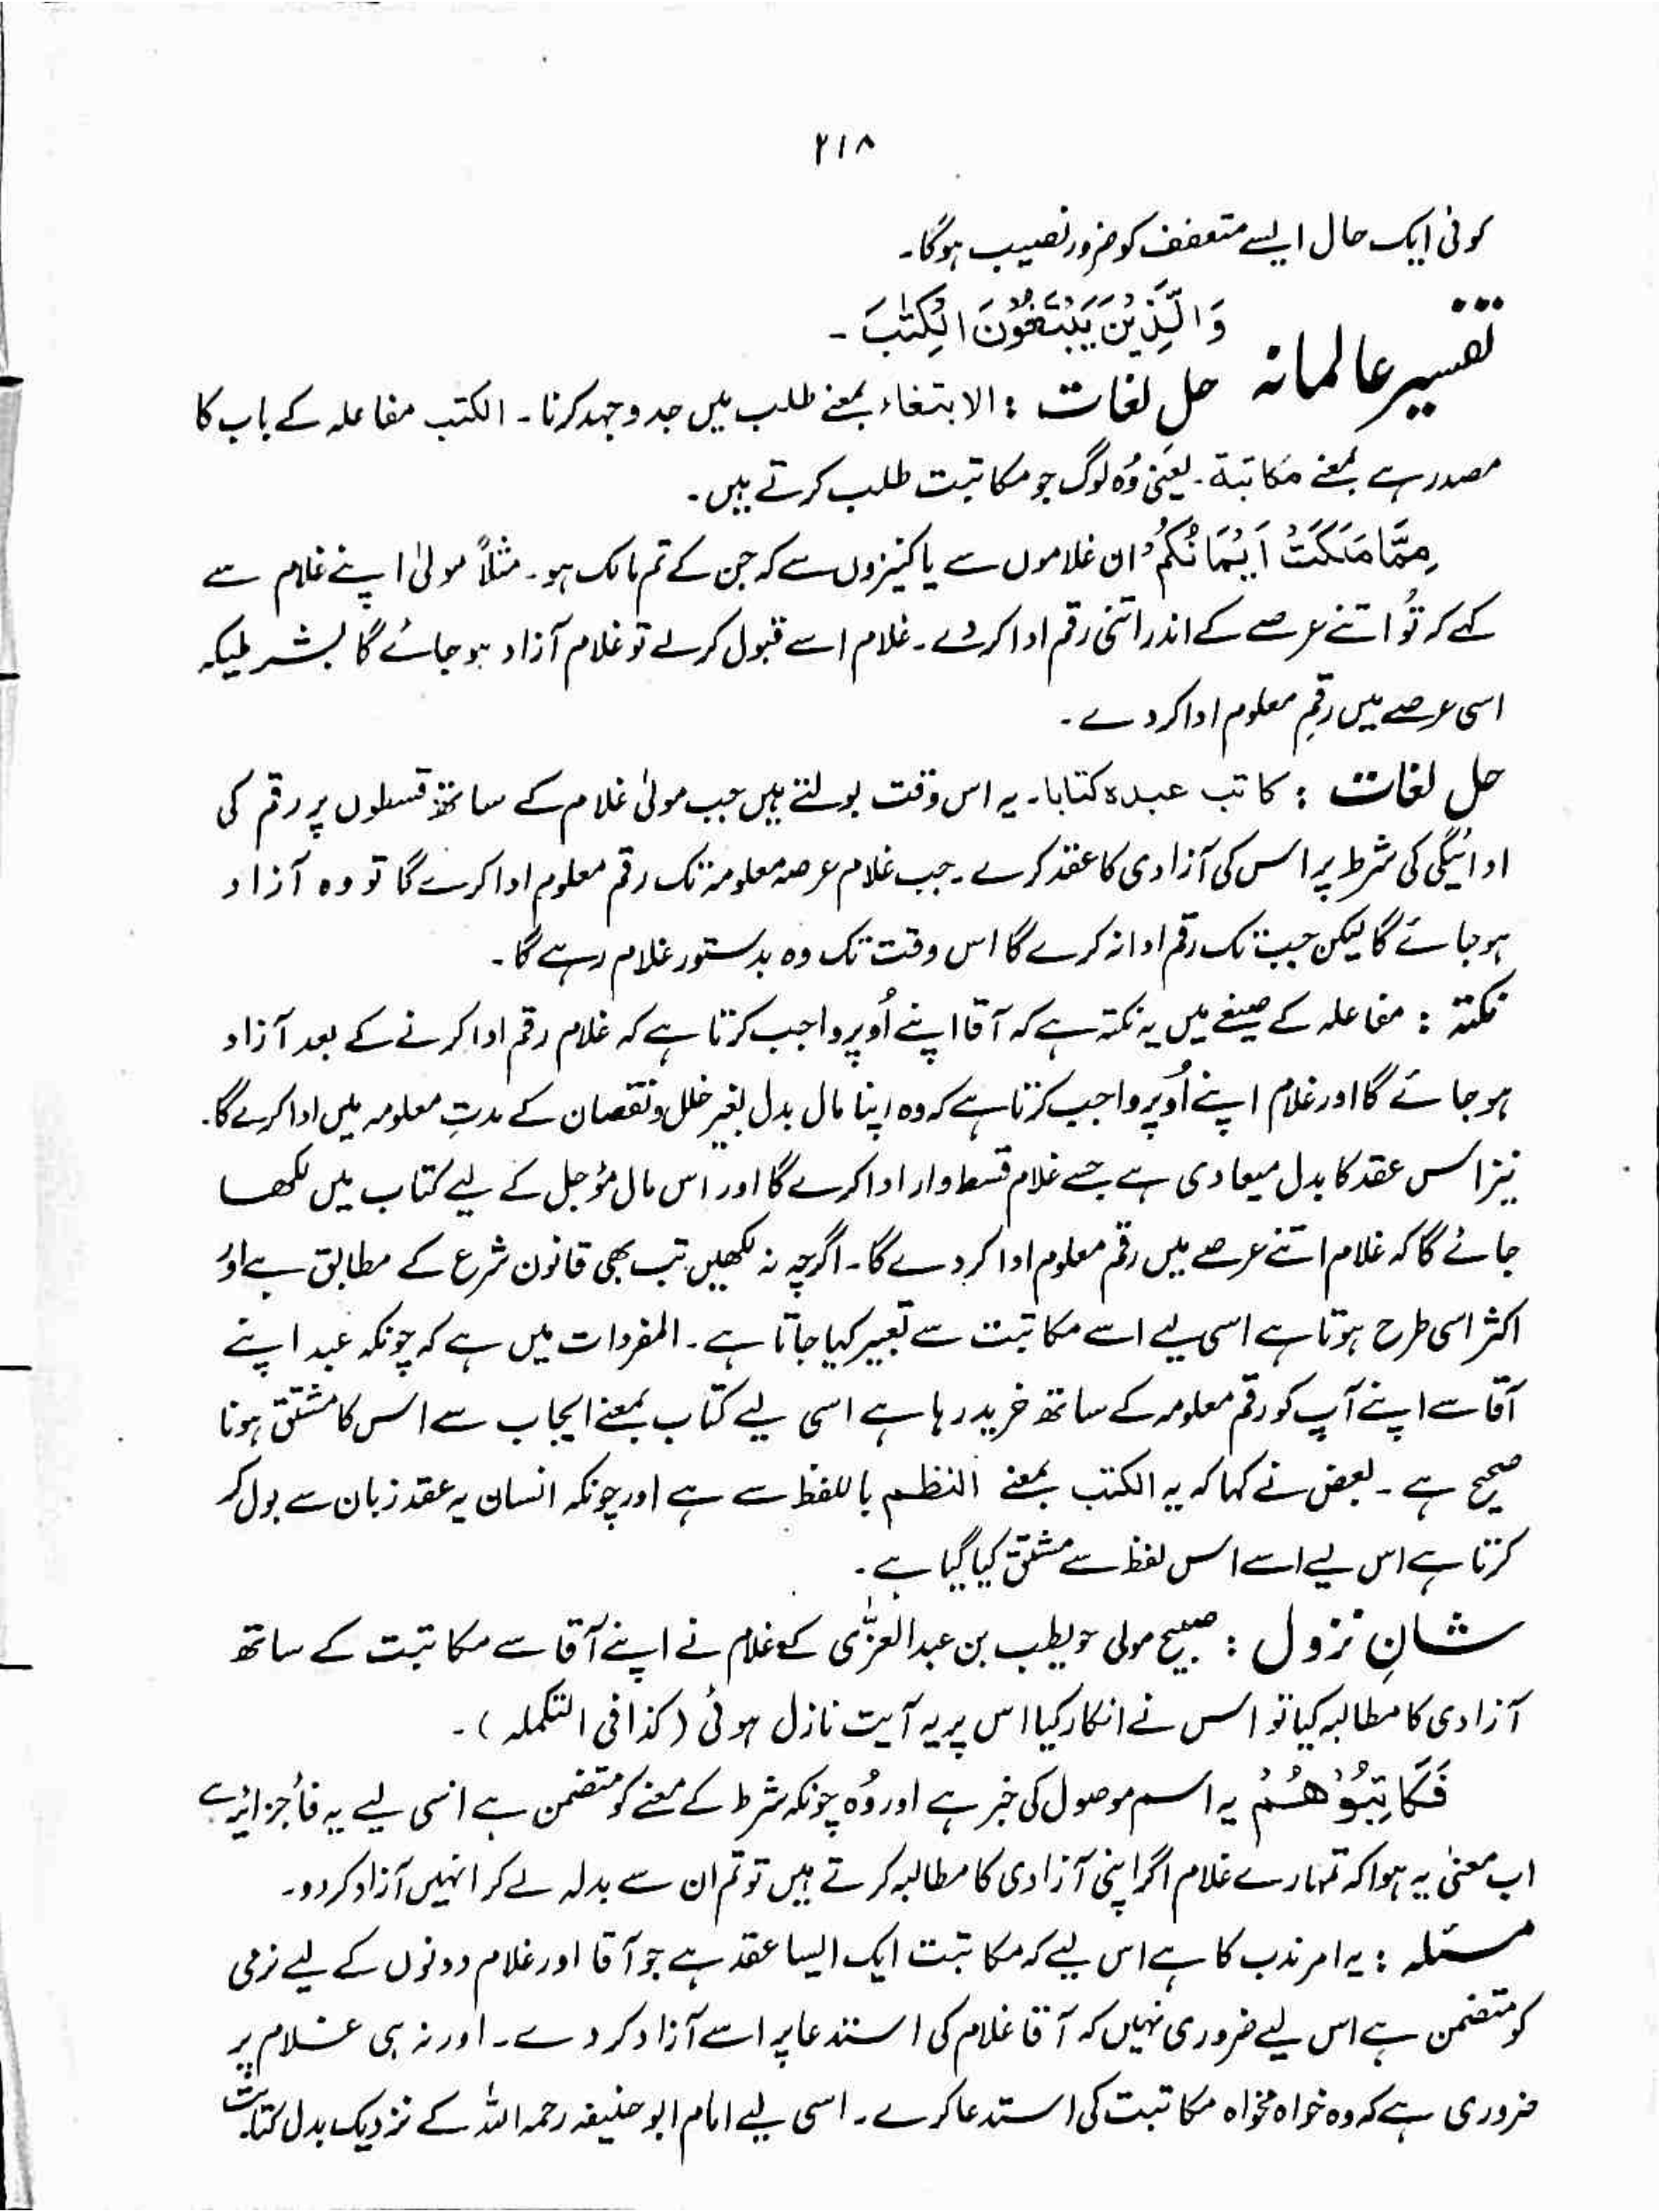 ۲۱۸
کوئی ایک حال ایسے متعفف کو ضرور نصیب ہوگا۔
وَالَّذِيْنَ يَبْتَغُوْنَ الْكِتٰبَ ۔
تفسیر عالمانہ
حل لغات : الابتغاء بمعنے طلب میں جد و جہد کرنا ۔ الکتب مفاعلہ کے باب کا
مصدر ہے بمعنے مکاتبۃ ۔ یعنی وُہ لوگ جو مکاتبت طلب کرتے ہیں ۔
مِمَّا مَلَكَتْ اَيْمَانُكُمْ ان غلاموں سے یا کنیزوں سے کہ جن کے تم مالک ہو ۔ مثلاً مولیٰ اپنے غلام سے
کہے کہ تُو اتنے عرصے کے اندر اتنی رقم ادا کر دے ۔ غلام اسے قبول کر لے تو غلام آزاد ہو جائے گا بشرطیکہ
اسی عرصے میں رقمِ معلوم ادا کر دے ۔
حل لغات : کاتب عبدہ کتابا ۔ یہ اس وقت بولتے ہیں جب مولیٰ غلام کے ساتھ قسطوں پر رقم کی
ادائیگی کی شرط پر اس کی آزادی کا عقد کرے ۔ جب غلام عرصۂ معلومہ تک رقم معلوم ادا کرے گا تو وہ آزاد
ہو جائے گا لیکن جب تک رقم ادا نہ کرے گا اس وقت تک وہ بدستور غلام رہے گا ۔
نکتہ : مفاعلہ کے صیغے میں یہ نکتہ ہے کہ آقا اپنے اُوپر واجب کرتا ہے کہ غلام رقم ادا کرنے کے بعد آزاد
ہو جائے گا اور غلام اپنے اُوپر واجب کرتا ہے کہ وہ اپنا مال بدل بغیر خلل و نقصان کے مدتِ معلومہ میں ادا کرے گا ۔
نیز اس عقد کا بدل میعادی ہے جسے غلام قسط وار ادا کرے گا اور اس مال مؤجل کے لیے کتاب میں لکھا
جائے گا کہ غلام اتنے عرصے میں رقم معلوم ادا کر دے گا ۔ اگرچہ نہ لکھیں تب بھی قانون شرع کے مطابق ہے اور
اکثر اسی طرح ہوتا ہے اسی لیے اسے مکاتبت سے تعبیر کیا جاتا ہے ۔ المفردات میں ہے کہ چونکہ عبد اپنے
آقا سے اپنے آپ کو رقم معلومہ کے ساتھ خرید رہا ہے اسی لیے کتاب بمعنے ایجاب سے اس کا مشتق ہونا
صحیح ہے ۔ بعض نے کہا کہ یہ الکتب بمعنے النظم باللفظ سے ہے اور چونکہ انسان یہ عقد زبان سے بول کر
کرتا ہے اس لیے اسے اس لفظ سے مشتق کیا گیا ہے ۔
شانِ نزول : صبیح مولی حویطب بن عبدالعزّٰی کے غلام نے اپنے آقا سے مکاتبت کے ساتھ
آزادی کا مطالبہ کیا تو اس نے انکار کیا اس پر یہ آیت نازل ہوئی (کذافی التکملہ) ۔
فَكَاتِبُوْهُمْ یہ اسم موصول کی خبر ہے اور وُہ چونکہ شرط کے معنے کو متضمن ہے اسی لیے یہ فأ جزائیہ ہے
اب معنیٰ یہ ہوا کہ تمہارے غلام اگر اپنی آزادی کا مطالبہ کرتے ہیں تو تم ان سے بدلہ لے کر انہیں آزاد کر دو ۔
مسئلہ : یہ امر ندب کا ہے اس لیے کہ مکاتبت ایک ایسا عقد ہے جو آقا اور غلام دونوں کے لیے نرمی
کو متضمن ہے اس لیے ضروری نہیں کہ آقا غلام کی استدعا پر اسے آزاد کر دے ۔ اور نہ ہی غلام پر
ضروری ہے کہ وہ خواہ مخواہ مکاتبت کی استدعا کرے ۔ اسی لیے امام ابو حنیفہ رحمہ اللہ کے نزدیک بدل کتابت